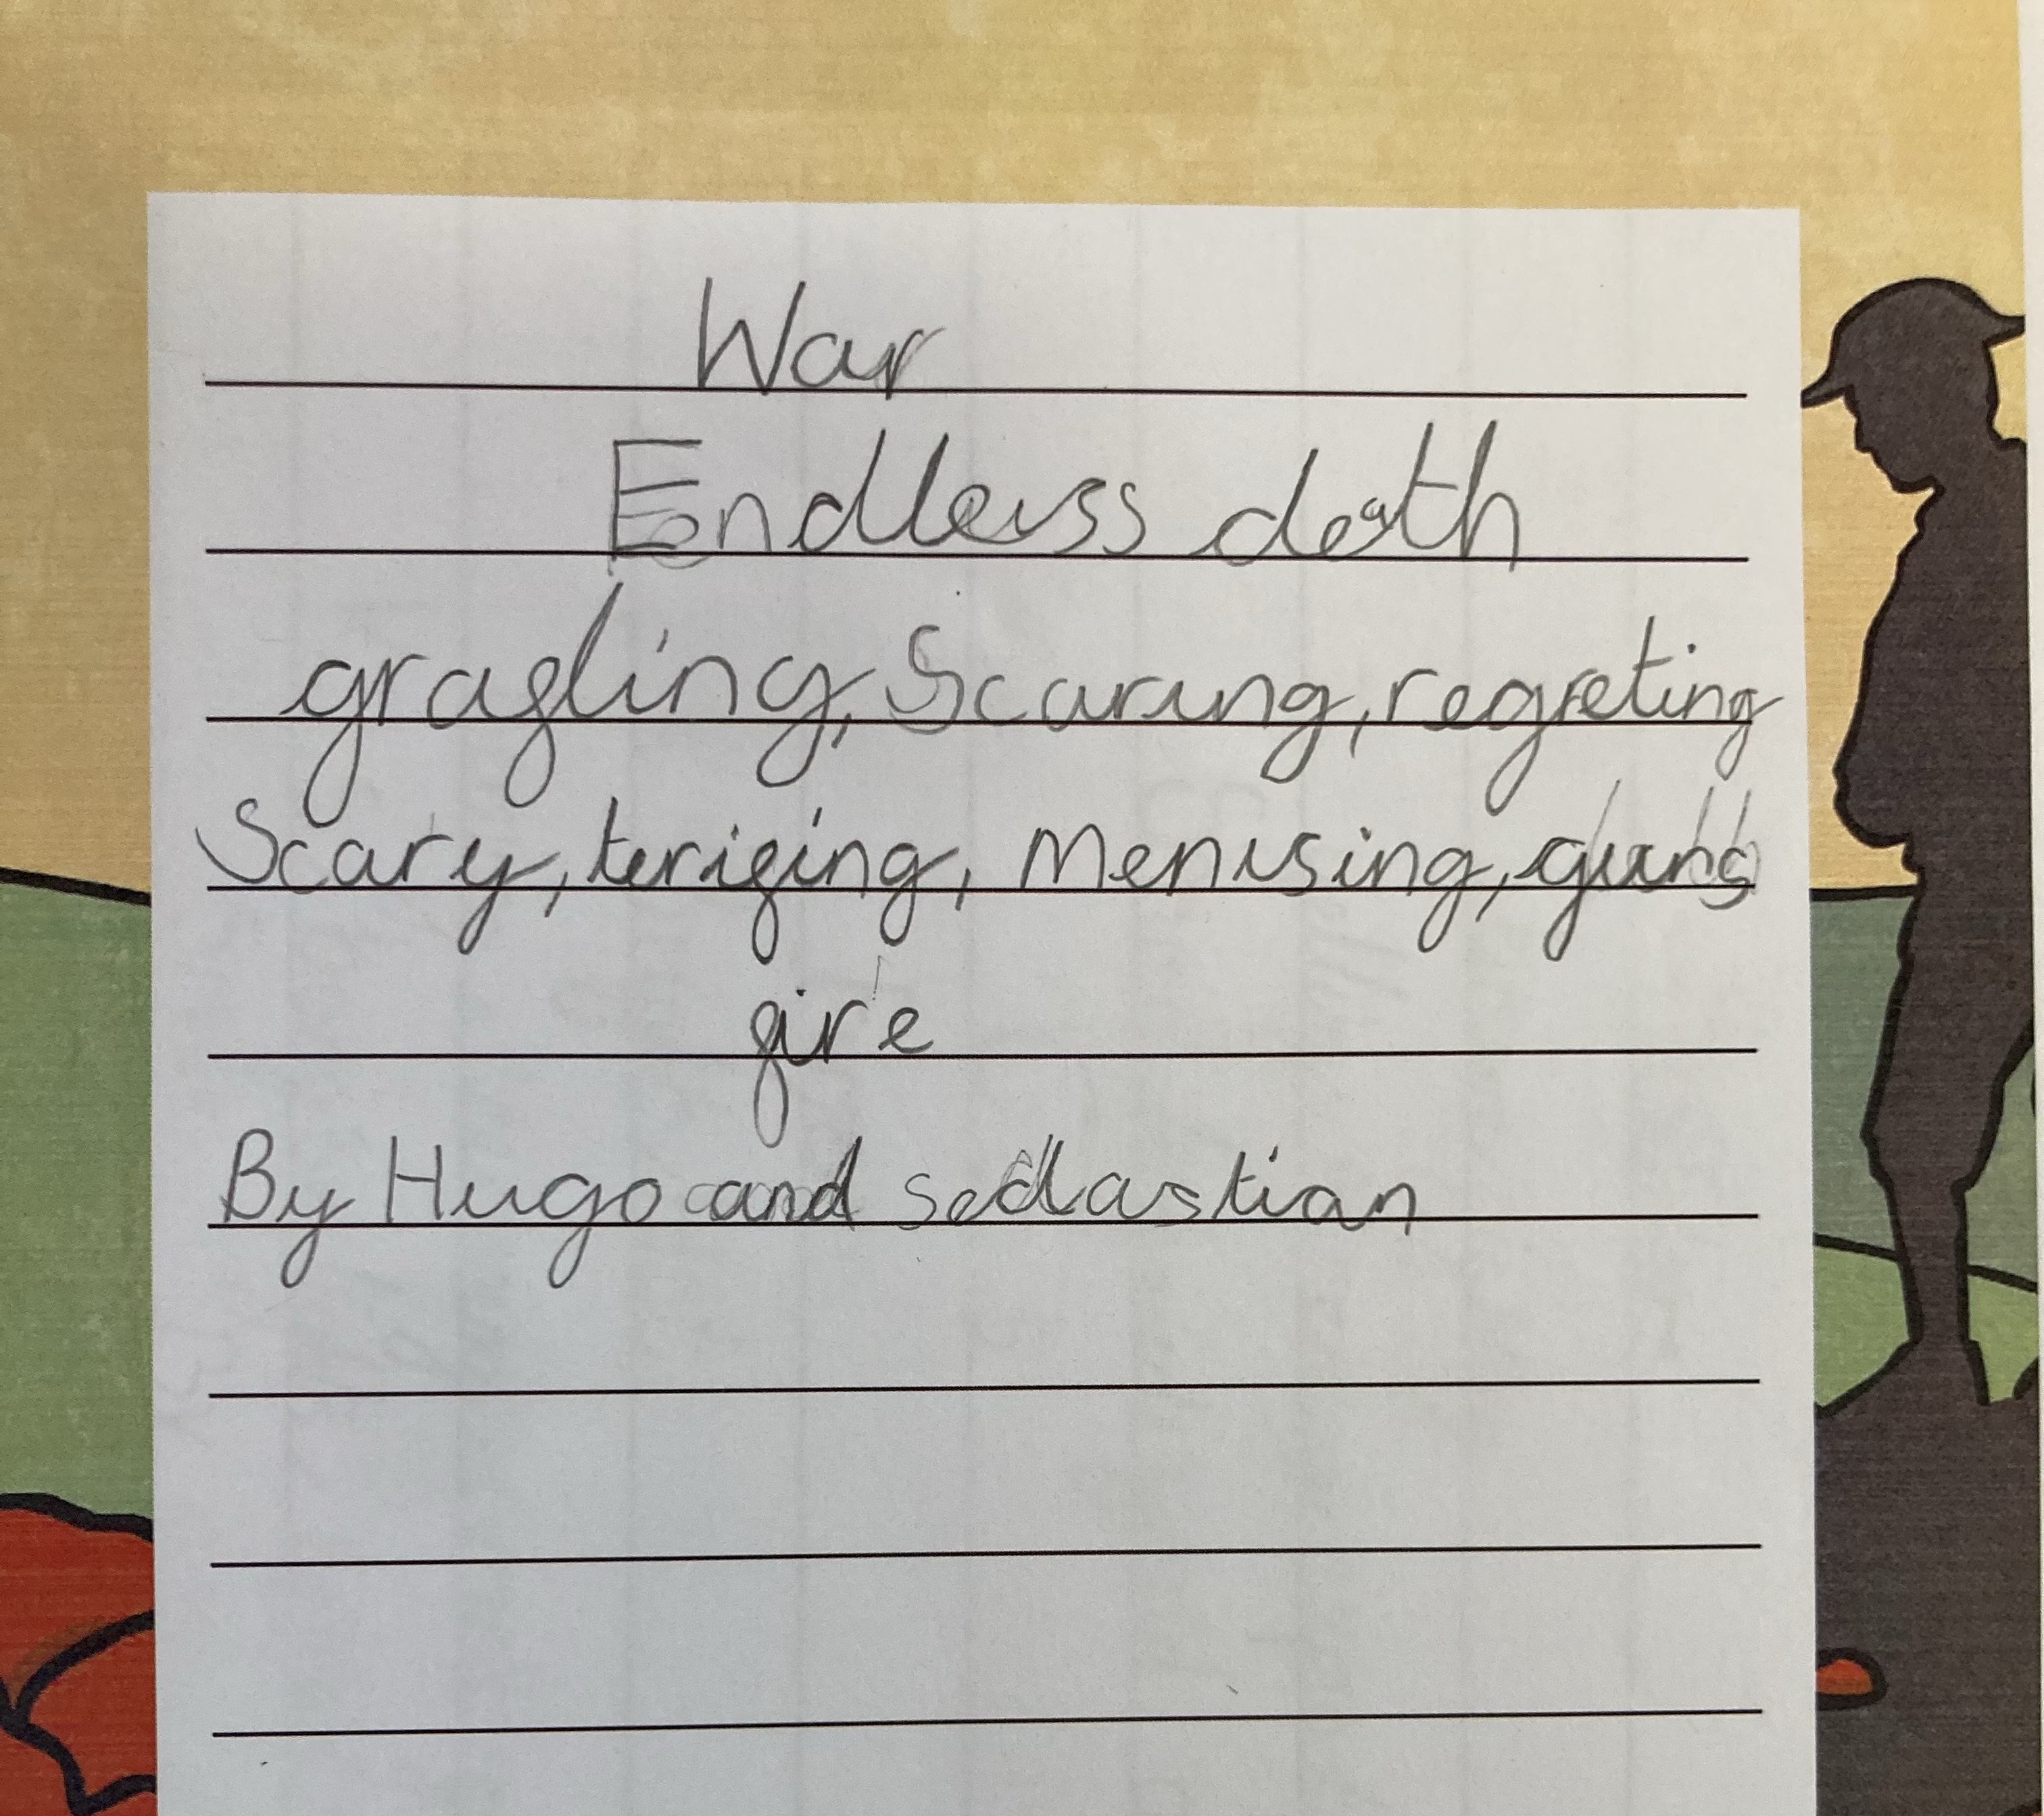 War
Endless death
gragling, Scaring, regreting
Scary, terifing, Menising, guns
fire
By Hugo and sebastian